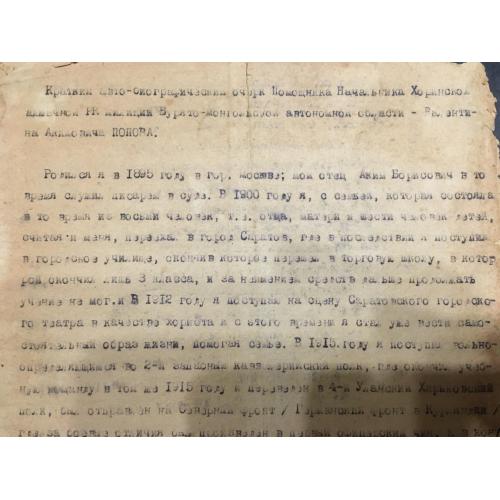 Краткий авто-биографический очерк Помощника Начальника Хоринской
аймачной РК милиции Бурято-монгольской автономной области - Валенти-
на Акимовича ПОПОВА.
Родился я в 1895 году в гор. Москве; мой отец Аким Борисович в то
время служил писарем в суде. В 1900 году я, с семьей, которая состояла
в то время из восьми человек, т.е. отца, матери и шести человек детей,
считая и меня, переехал в город Саратов, где в последствии я поступил
в городское училище, окончив которое перешел в торговую школу, в котор
рой окончил лишь 3 класса, и за неимением средств дальше продолжать
учение не мог.и В 1912 году я поступил на сцену Саратовского городско-
го театра в качестве хориста и с этого времени я стал уже вести само-
стоятельный образ жизни, помогая семье. В 1915.году я поступил вольно-
определяющимся во 2-й запасной кавалерийский полк, где окончил учеб-
ную команду, в том же 1915 году и переведен в 4-й Уланский Харьковский
полк, был отправлен на Северный фронт / Германский фронт в Курляндии /
где за боевые отличия был произведен в первый офицерский чин.